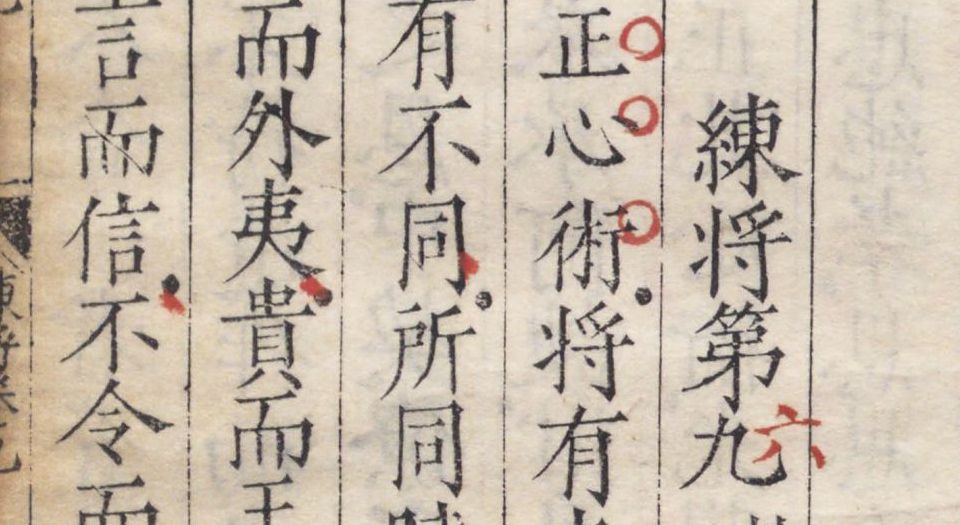 練将第九六
正心術将有
有不同所同
而外夷貴而
言而信不令而